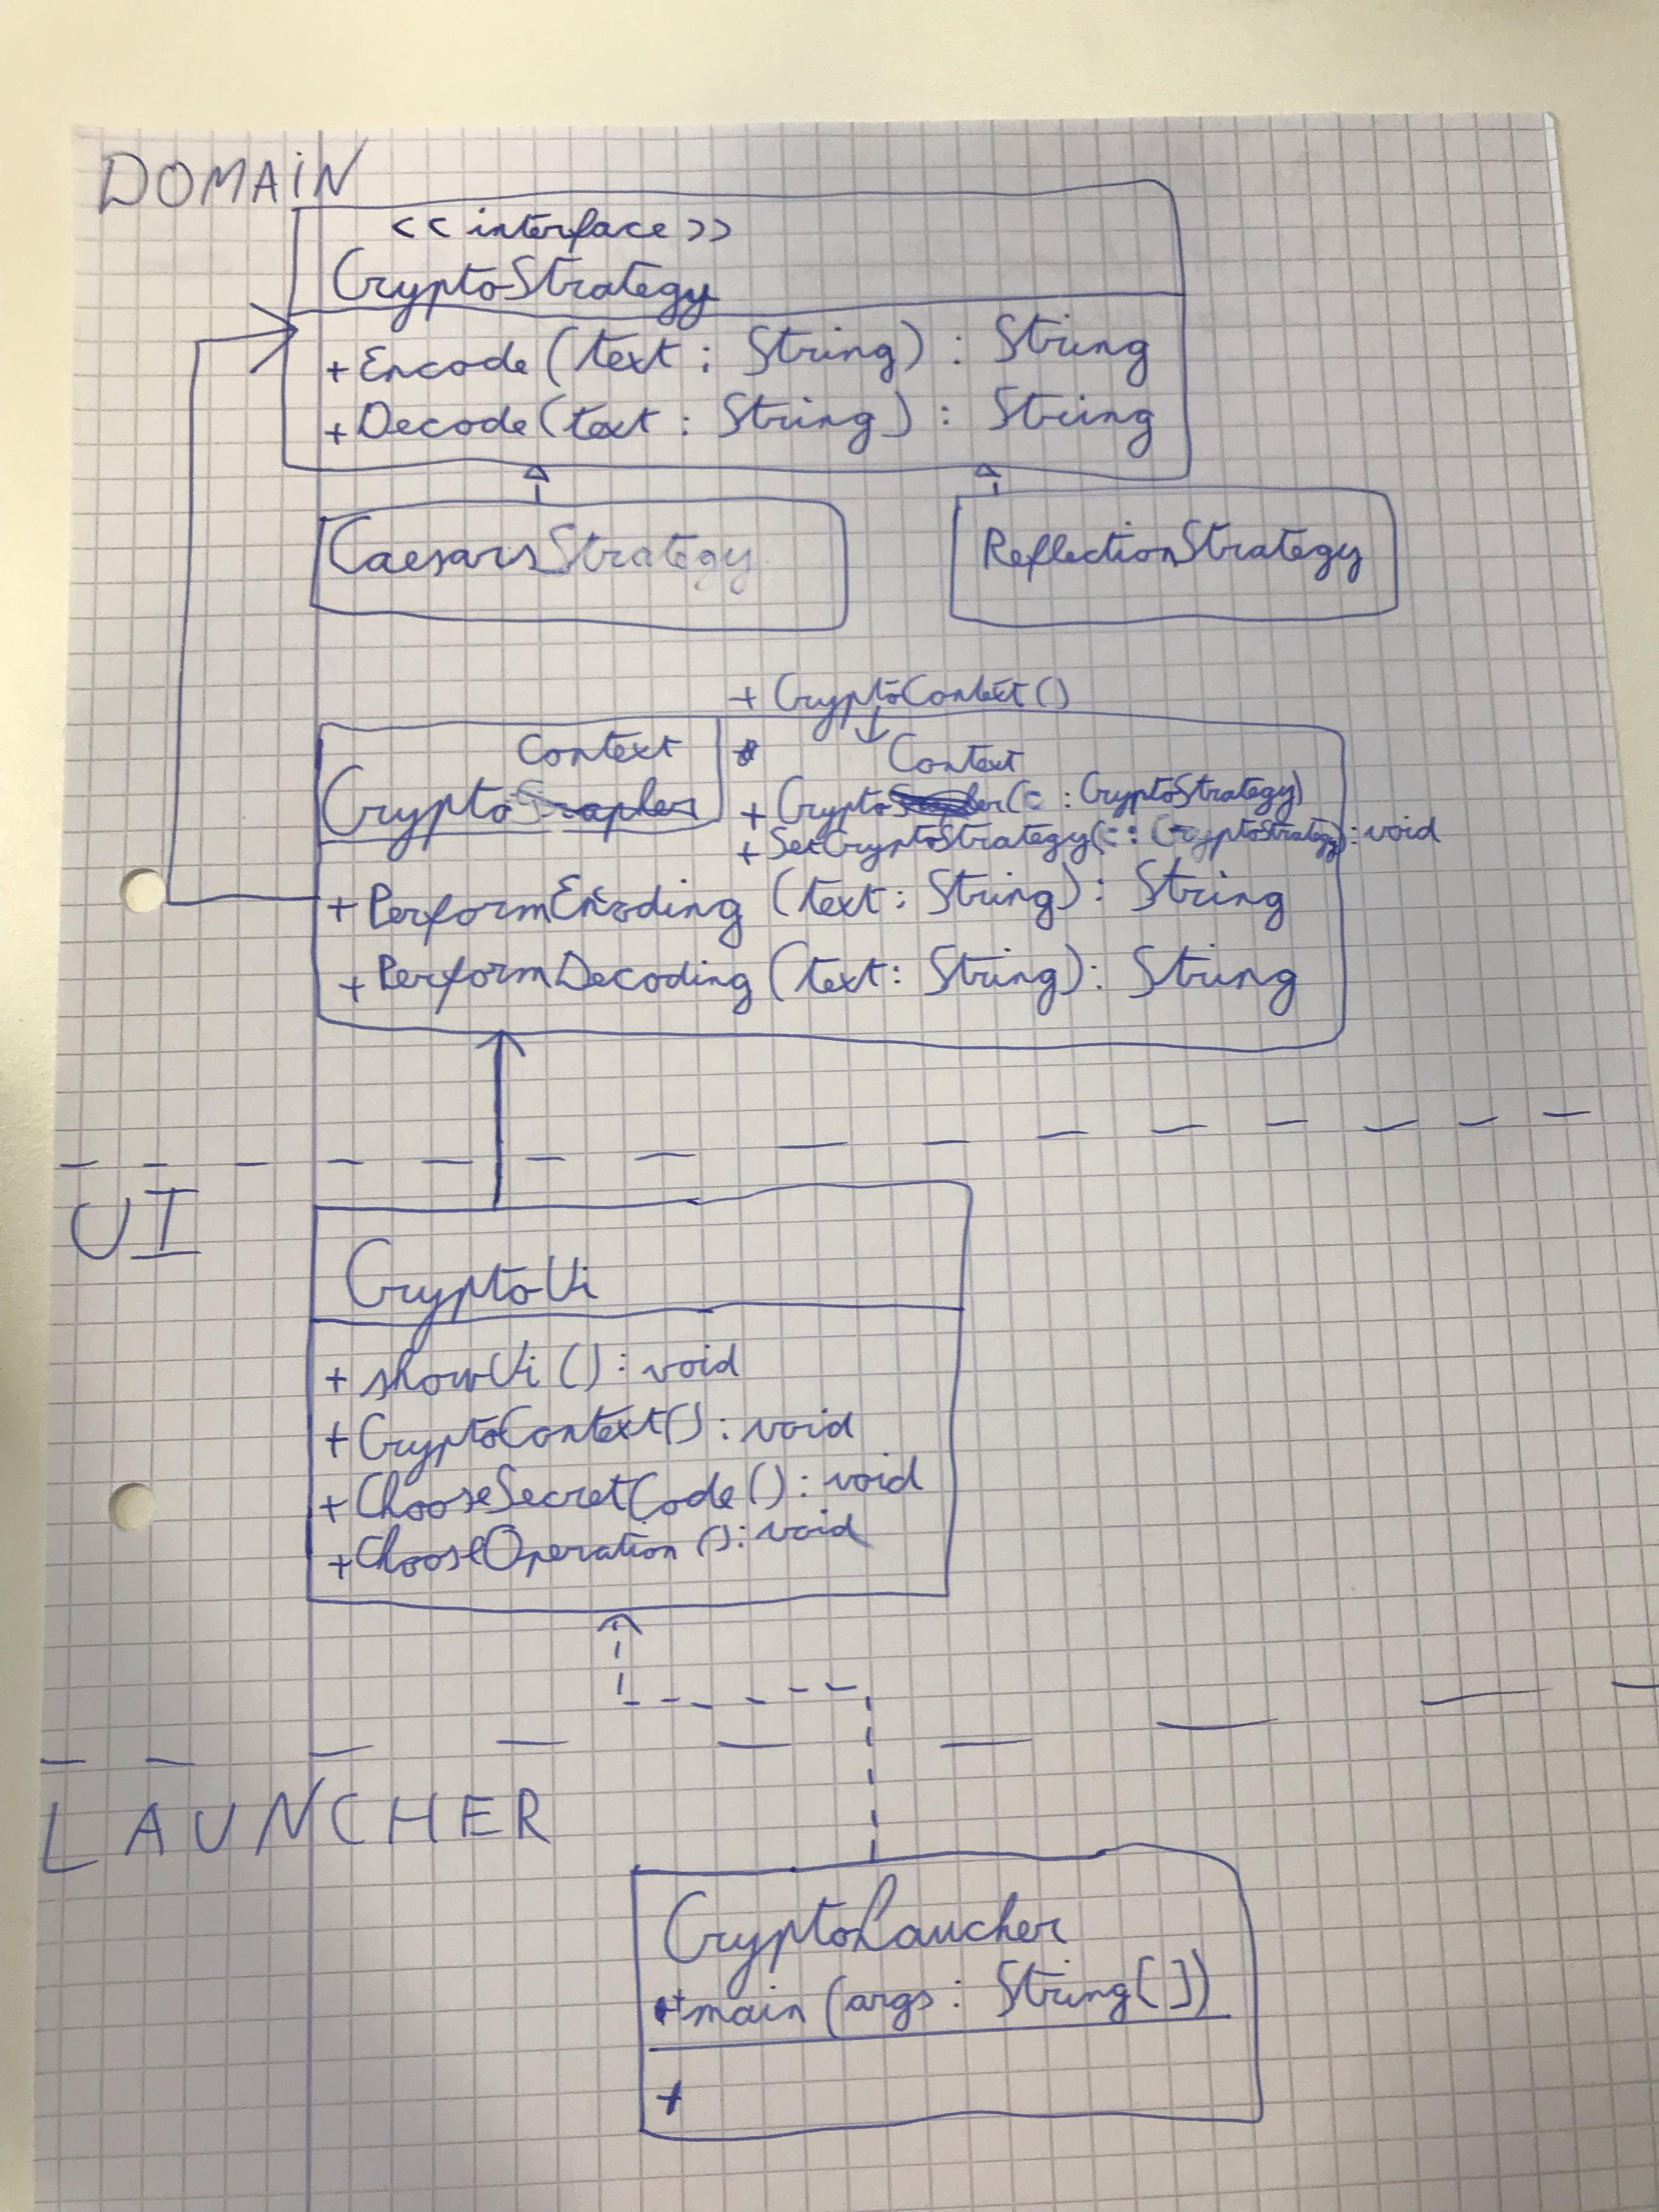 DOMAIN
<< interface >>
CryptoStrategy
+Encode(text : String) : String
+Decode(text : String) : String
CaesarsStrategy
ReflectionStrategy
+ CryptoContext()
Context
Crypto
Context
+ Crypto (c : CryptoStrategy)
+ SetCryptoStrategy(c : CryptoStrategy) : void
+ PerformEncoding (text : String) : String
+ PerformDecoding (text : String) : String
UI
CryptoUi
+ showUi () : void
+ CryptoContext() : void
+ChooseSecretCode () : void
+ChooseOperation () : void
LAUNCHER
CryptoLaucher
+main (args : String[])
+